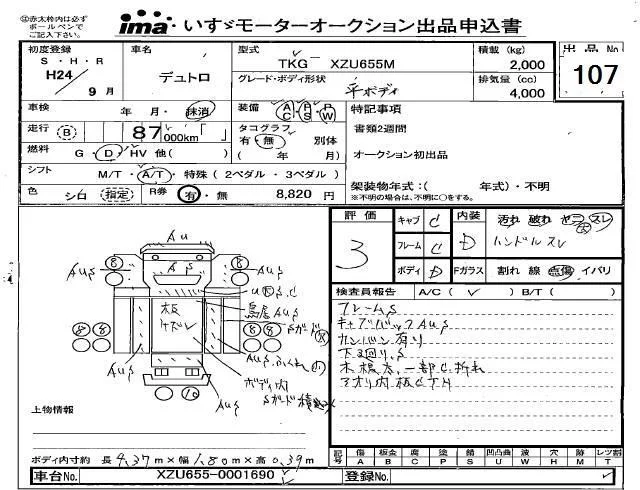 ㊟赤太枠内は必ず
ボールペンで
ご記入下さい。
ima いすゞモーターオークション出品申込書
初度登録 車名 型式 積載 (kg) 出品No
S・H・R TKG XZU655M 2,000
H24 デュトロ グレード・ボディ形状 排気量 (cc) 107
9月 平ボディ 4,000
車検 年 月・抹消 装備 AC AS PW 特記事項
走行 B 87,000km「 」 タコグラフ 書類2週間
有・無 別体
燃料 G・D・HV 他( ) ( 年 月) オークション初出品
シフト M/T・A/T・特殊(2ペダル・3ペダル) 架装物年式:( 年式)・不明
色 シロ 指定 R券 有・無 8,820 円 ※不明の場合は、不明に○をする。
評価 キャブ C 内装 汚れ 破れ ヤニ スレ
3 フレーム C D ハンドルスレ
ボディ D Fガラス 割れ 線 点傷 イバリ
検査員報告 A/C( ✓ ) B/T( )
フレームS
キャブバックAUS
カンバン有り
下廻り.S
木根太、一部C.折れ
アオリ内板CTH
AU
8 8
AUS AS AUS
鳥居AUS
板
8 8 8 8
AUS AUS
ボディ内
AUS
10
上物情報
ボディ内寸約 長 4.37m×幅 1.80m×高 0.39m
記号 傷 板金 腐 塗 錆 凹凸曲 波 穴 跡 レツ割
A B C P S U W H M T
車台No. XZU655-0001690 登録No.